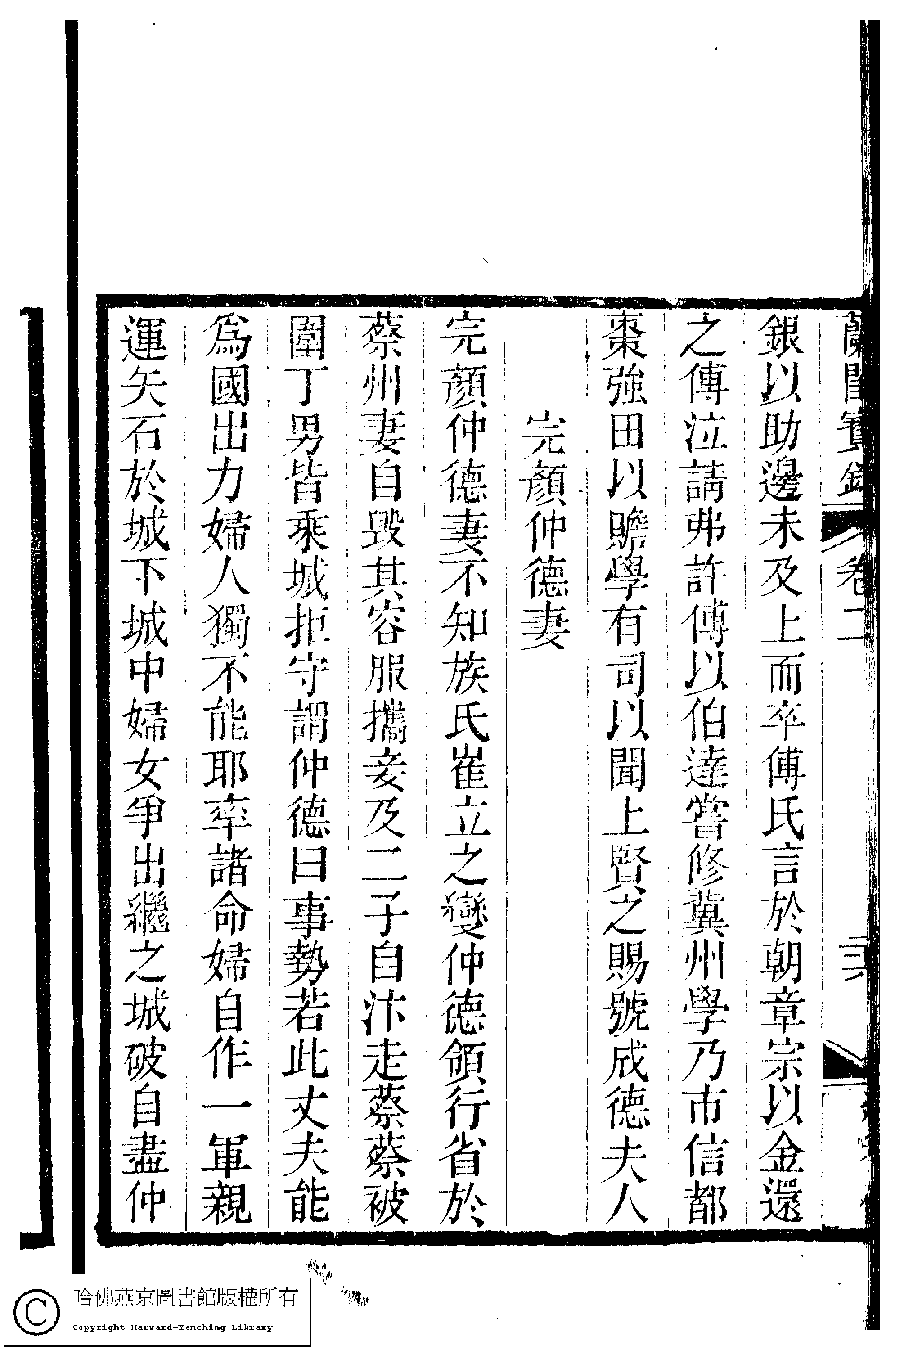 蘭閨寶錄 卷二 二六
銀以助邊未及上而卒傅氏言於朝章宗以金還
之傅泣請弗許傅以伯達嘗修冀州學乃市信都
棗強田以贍學有司以聞上賢之賜號成德夫人
完顏仲德妻
完顏仲德妻不知族氏崔立之變仲德領行省於
蔡州妻自毀其容服攜妾及二子自汴走蔡蔡被
圍丁男皆乘城拒守謂仲德曰事勢若此丈夫能
為國出力婦人獨不能耶率諸命婦自作一軍親
運矢石於城下城中婦女爭出繼之城破自盡仲
哈佛燕京圖書館版權所有
Copyright Harvard-Yenching Library